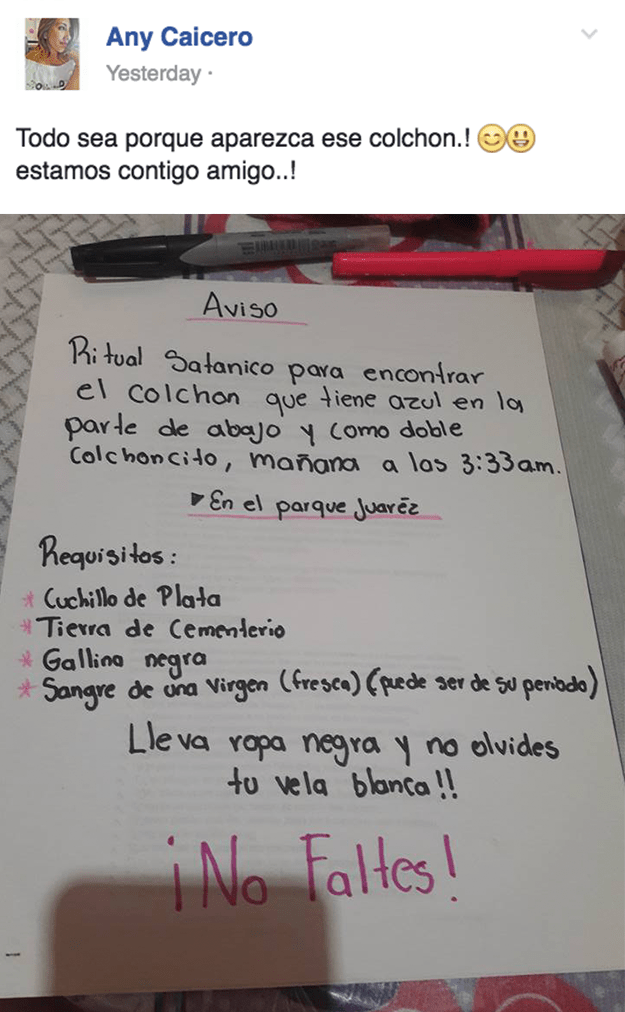 Any Caicero
Yesterday ·
Todo sea porque aparezca ese colchon.! 😊😃
estamos contigo amigo..!
Aviso
Ritual Satanico para encontrar
el colchon que tiene azul en la
parte de abajo y como doble
Colchoncito, mañana a las 3:33am.
▼En el parque Juaréz
Requisitos:
* Cuchillo de Plata
* Tierra de Cementerio
* Gallina negra
* Sangre de una Virgen (fresca) (puede ser de su periodo)
Lleva ropa negra y no olvides
tu vela blanca!!
¡No Faltes!